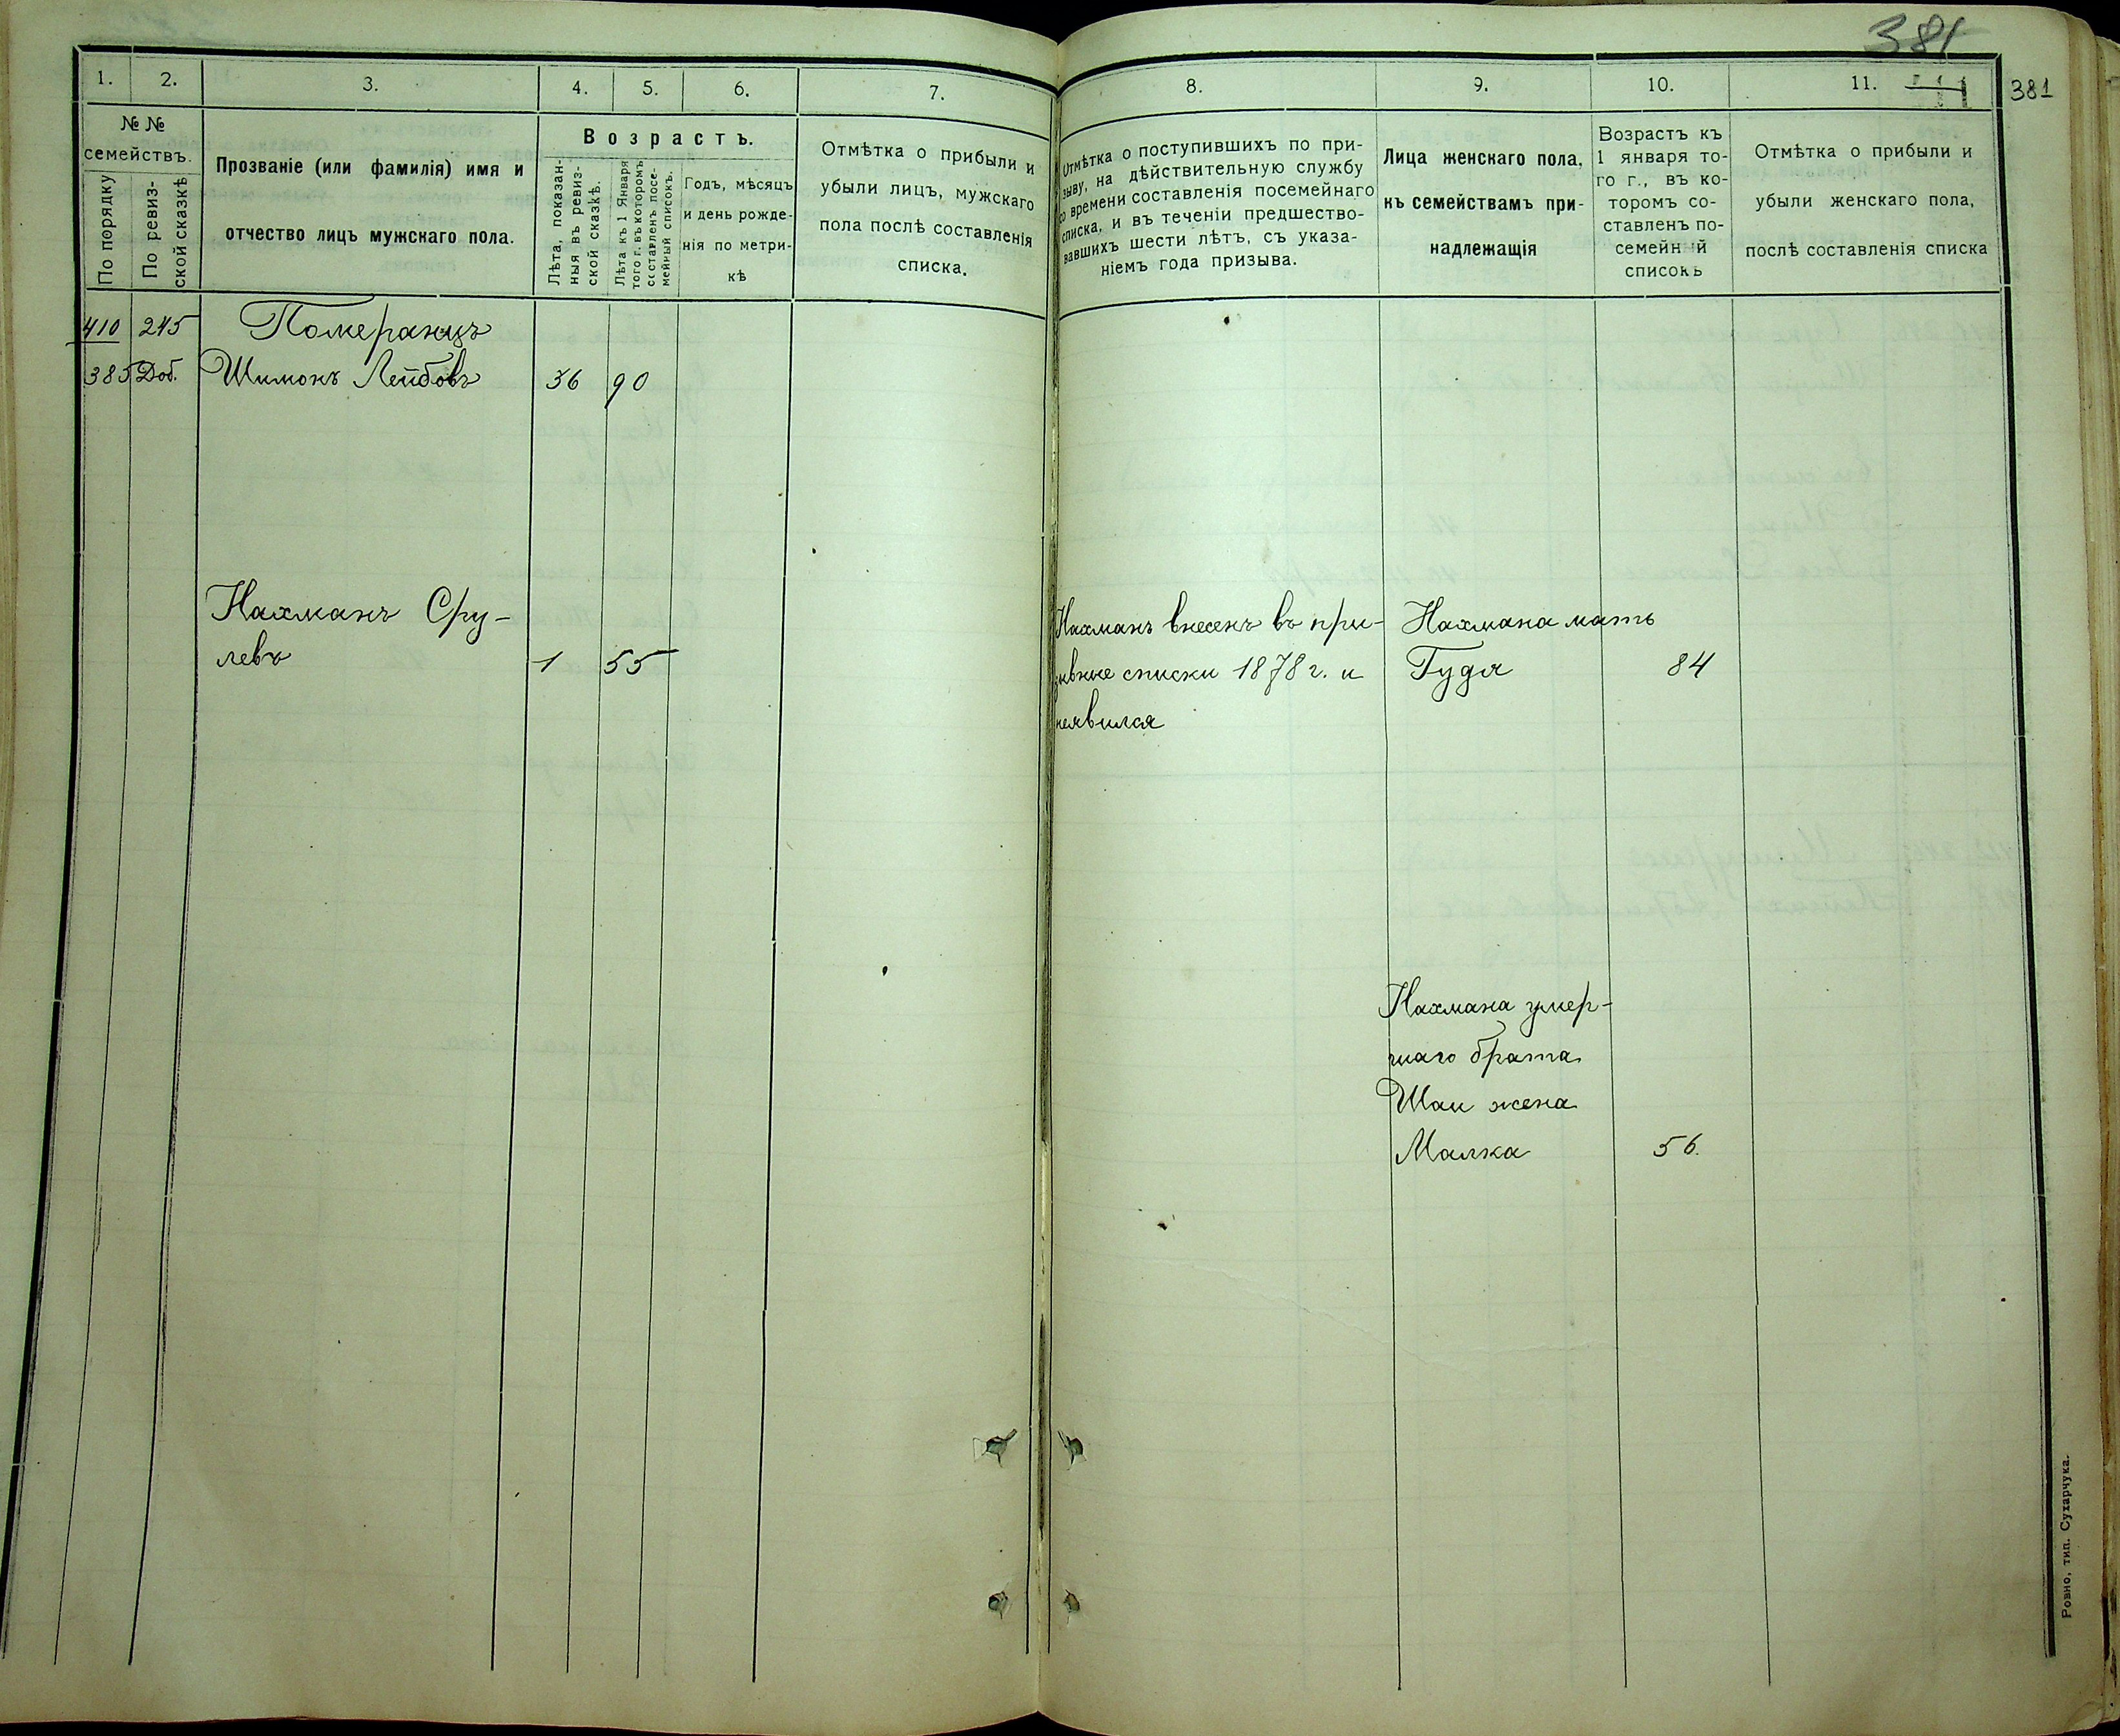 381
381
1.
2.
3.
4.
5.
6.
7.
№ №
семействъ.
По порядку
По ревиз-
ской сказкѣ
Прозваніе (или фамилія) имя и
отчество лицъ мужскаго пола.
Возрастъ.
Лѣта, показан-
ныя въ ревиз-
ской сказкѣ.
Лѣта къ 1 Января
того г. въ которомъ
составленъ посе-
мейный списокъ.
Годъ, мѣсяцъ
и день рожде-
нія по метри-
кѣ
Отмѣтка о прибыли и
убыли лицъ, мужскаго
пола послѣ составленія
списка.
410 245 Померанцъ
385 Доб. Шимонъ Лейбовъ 36 90
Нахманъ Сру-
левъ 1 55
8.
9.
10.
11.
Отмѣтка о поступившихъ по при-
зыву, на дѣйствительную службу
со времени составленія посемейнаго
списка, и въ теченіи предшество-
вавшихъ шести лѣтъ, съ указа-
ніемъ года призыва.
Лица женскаго пола,
къ семействамъ при-
надлежащія
Возрастъ къ
1 января то-
го г., въ ко-
торомъ со-
ставленъ по-
семейный
списокъ
Отмѣтка о прибыли и
убыли женскаго пола,
послѣ составленія списка
Нахманъ внесенъ въ при-
зывные списки 1878 г. и
неявился
Нахмана мать
Гудя 84
Нахмана умер-
шаго брата
Шаи жена
Малка 56.
Ровно, тип. Сухарчука.